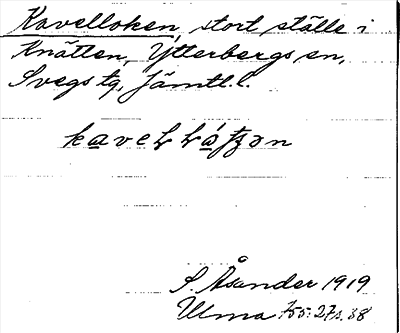 Kavelloken, stort ställe i
Knätten, Ytterbergs sn,
Svegs tg, Jämtl. l.
S. Åsander 1919
Ulma 755:27 s. 38